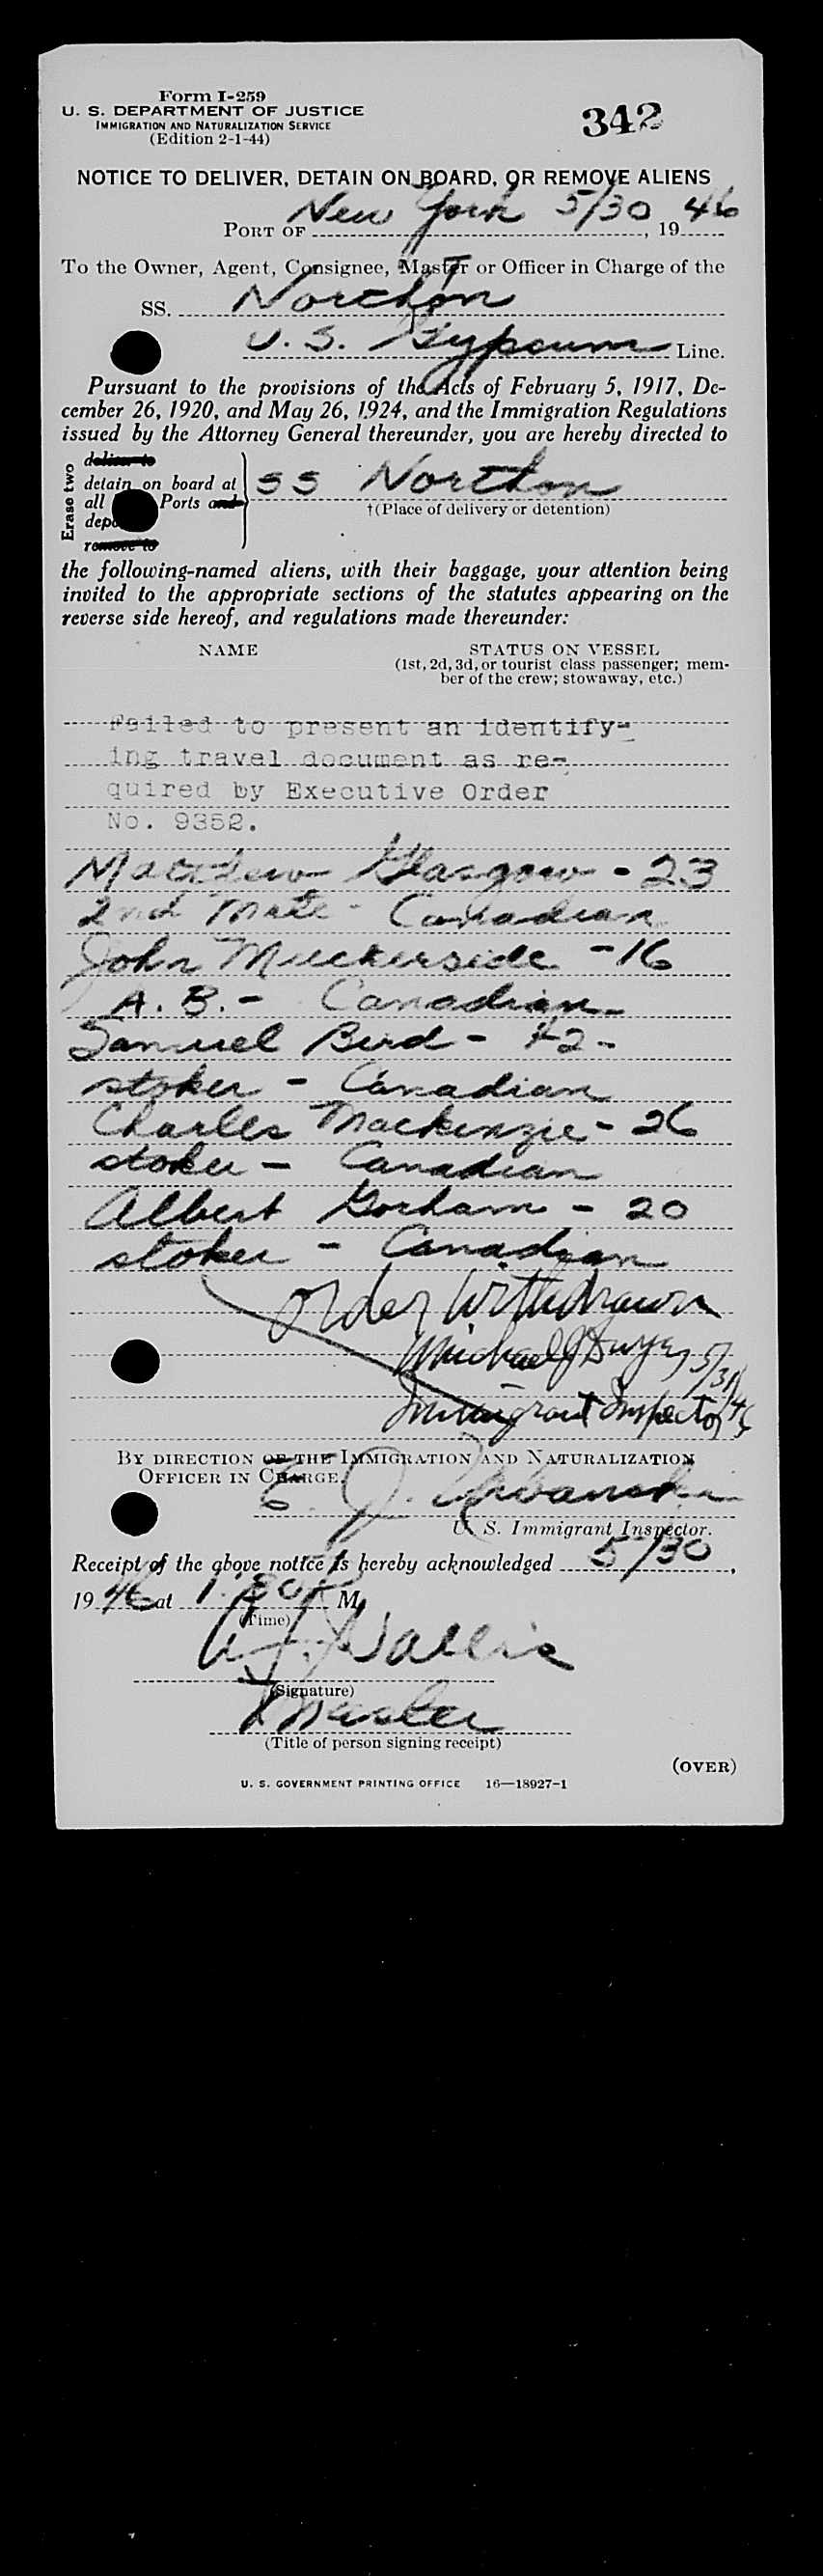 Form I-259
U. S. DEPARTMENT OF JUSTICE
IMMIGRATION AND NATURALIZATION SERVICE
(Edition 2-1-44)
342
NOTICE TO DELIVER, DETAIN ON BOARD, OR REMOVE ALIENS
PORT OF New York 5/30, 1946
To the Owner, Agent, Consignee, Master or Officer in Charge of the
SS. Northon
U. S. Gypsum Line.
Pursuant to the provisions of the Acts of February 5, 1917, De-
cember 26, 1920, and May 26, 1924, and the Immigration Regulations
issued by the Attorney General thereunder, you are hereby directed to
Erase two
deliver to
detain on board at
all Ports and
remove to
SS Northon
†(Place of delivery or detention)
the following-named aliens, with their baggage, your attention being
invited to the appropriate sections of the statutes appearing on the
reverse side hereof, and regulations made thereunder:
NAME STATUS ON VESSEL
(1st, 2d, 3d, or tourist class passenger; mem-
ber of the crew; stowaway, etc.)
Failed to present an identify-
ing travel document as re-
quired by Executive Order
No. 9352.
Matthew Glasgow - 23
2nd Mate - Canadian
John Muckerside - 16
A. B. - Canadian
Samuel Bird - 42 -
stoker - Canadian
Charles Mackenzie - 26
stoker - Canadian
Albert Gorham - 20
stoker - Canadian
Order Withdrawn
Michael J Dwyer 5/31/46
Immigrant Inspector
BY DIRECTION OF THE IMMIGRATION AND NATURALIZATION
OFFICER IN CHARGE.
E. J. Urbanski
U. S. Immigrant Inspector.
Receipt of the above notice is hereby acknowledged 5/30,
1946 at M.
(Time)
Wallis
(Signature)
Master
(Title of person signing receipt)
(OVER)
U. S. GOVERNMENT PRINTING OFFICE 16—18927-1